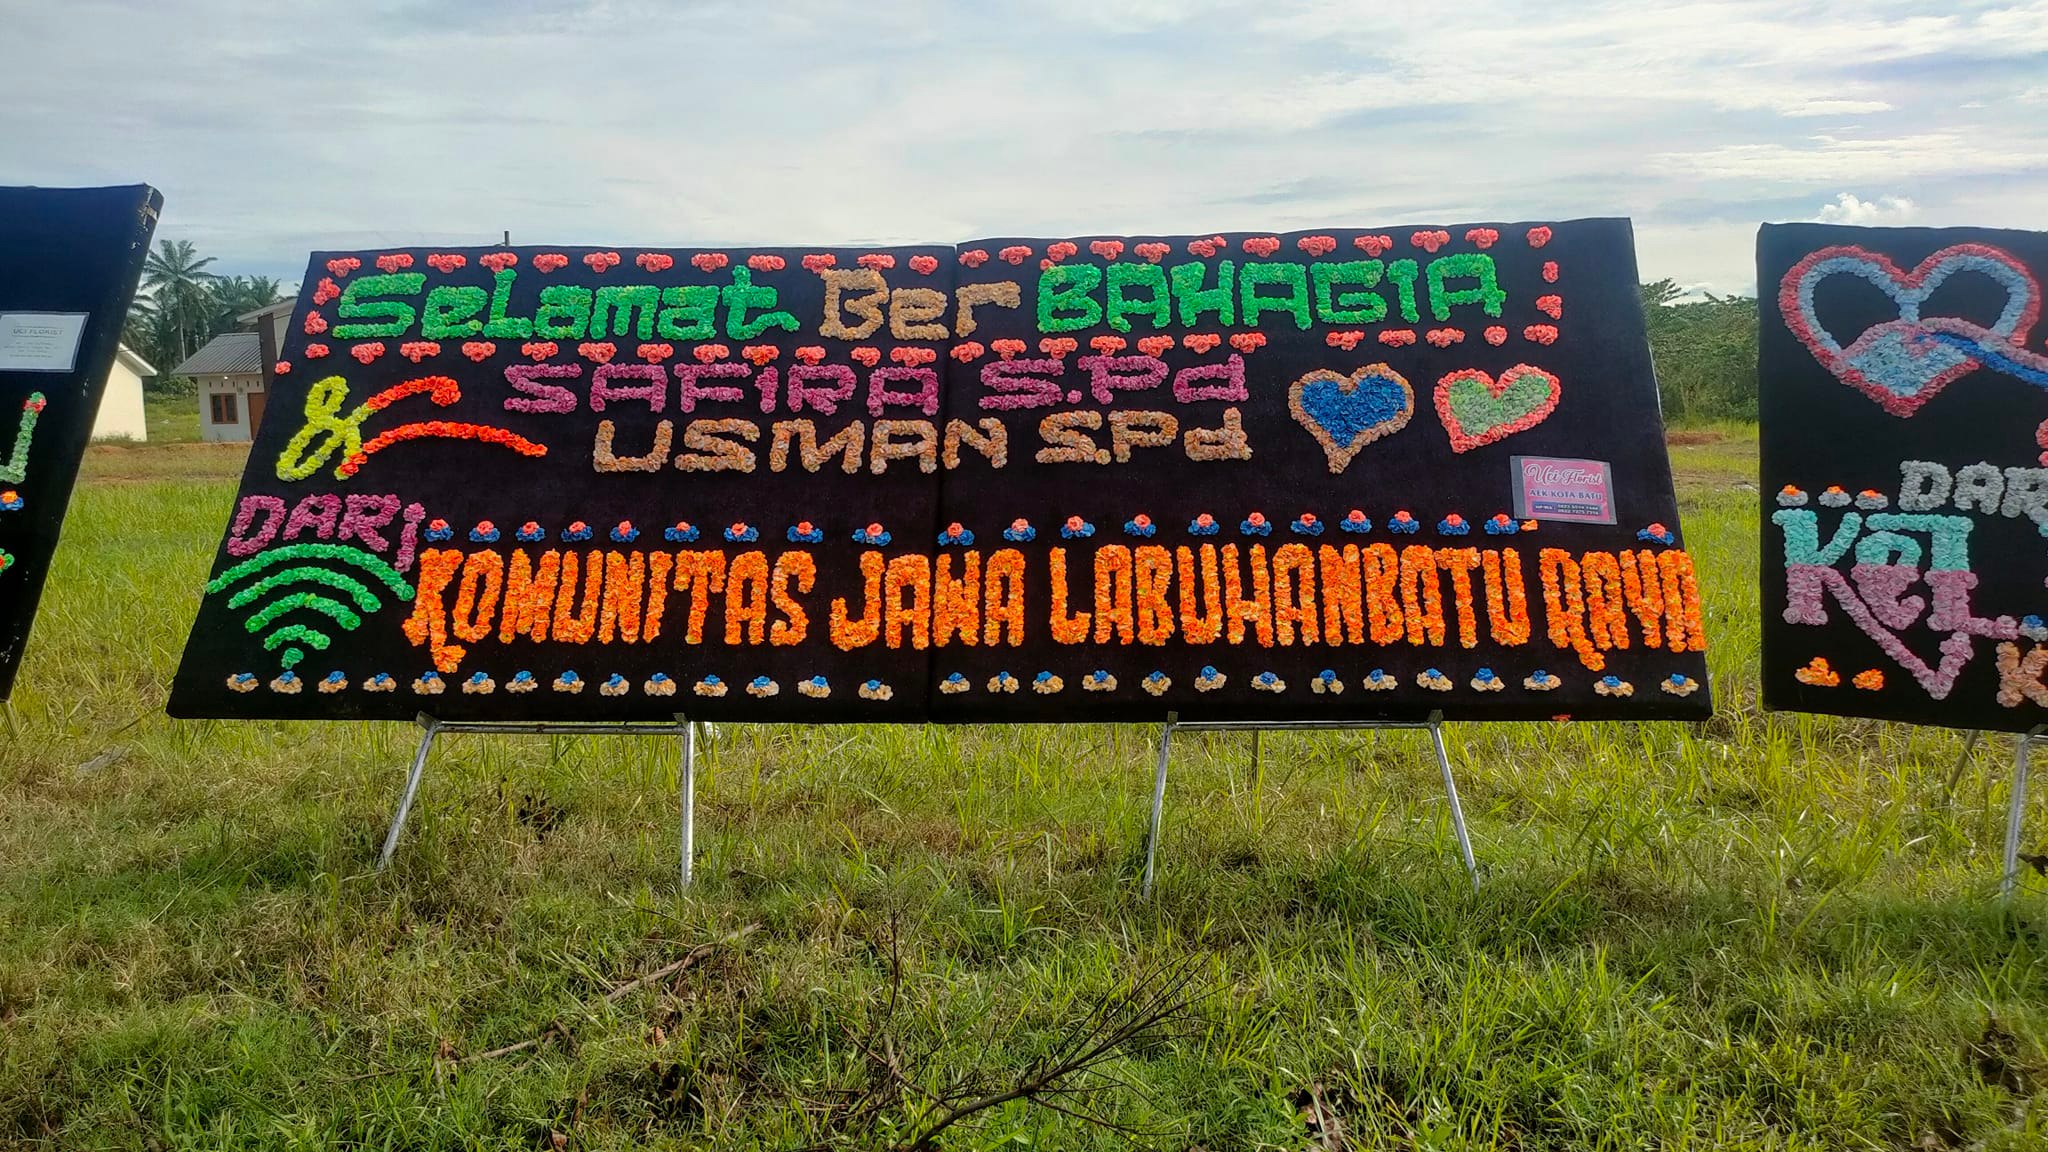 Selamat Ber BAHAGIA
&
SAFIRA S.Pd
USMAN S.Pd
DARi
KOMUNITAS JAWA LABUHANBATU RAYA
Uci Florist
AEK KOTA BATU
UCI FLORIST
DAR
KEL
KEL